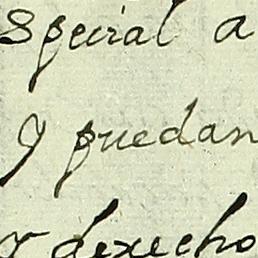 special a
y puedan
y derecho